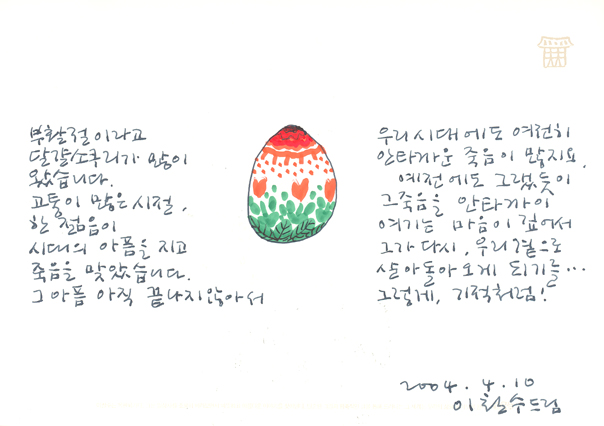 부활절이라고
달걀소쿠리가 많이
왔습니다.
고통이 많은 시절,
한 젊음이
시대의 아픔을 지고
죽음을 맞았습니다.
그 아픔 아직 끝나지않아서
우리 시대에도 여전히
안타까운 죽음이 많지요.
예전에도 그랬듯이
그죽음을 안타까이
여기는 마음이 깊어서
그가 다시, 우리곁으로
살아돌아 오게 되기를…
그렇게, 기적처럼!
2004. 4. 10
이철수드림